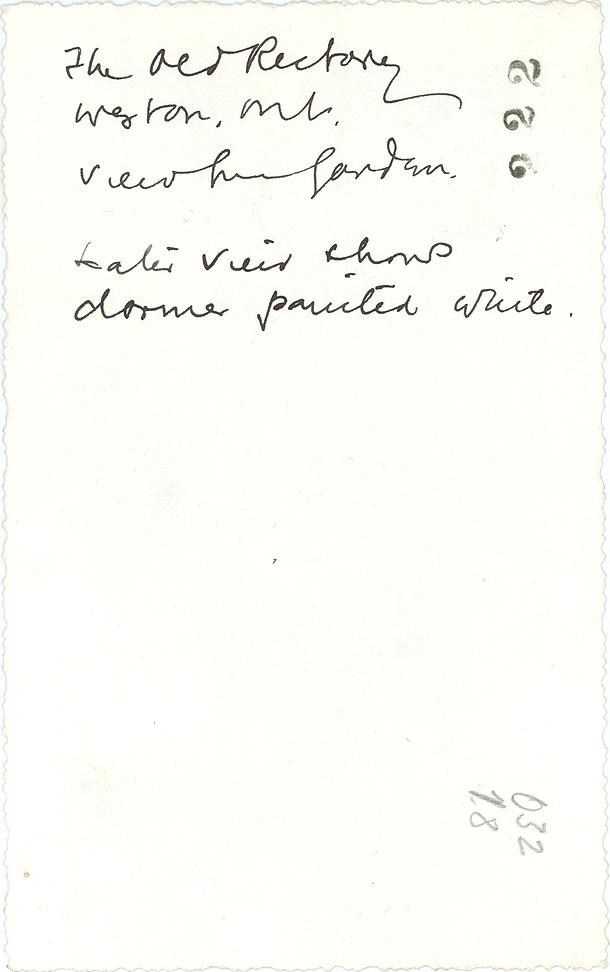 The Old Rectory
Weston, Ont.
View from garden.
Later view shows
dormer painted white.
222
032
18